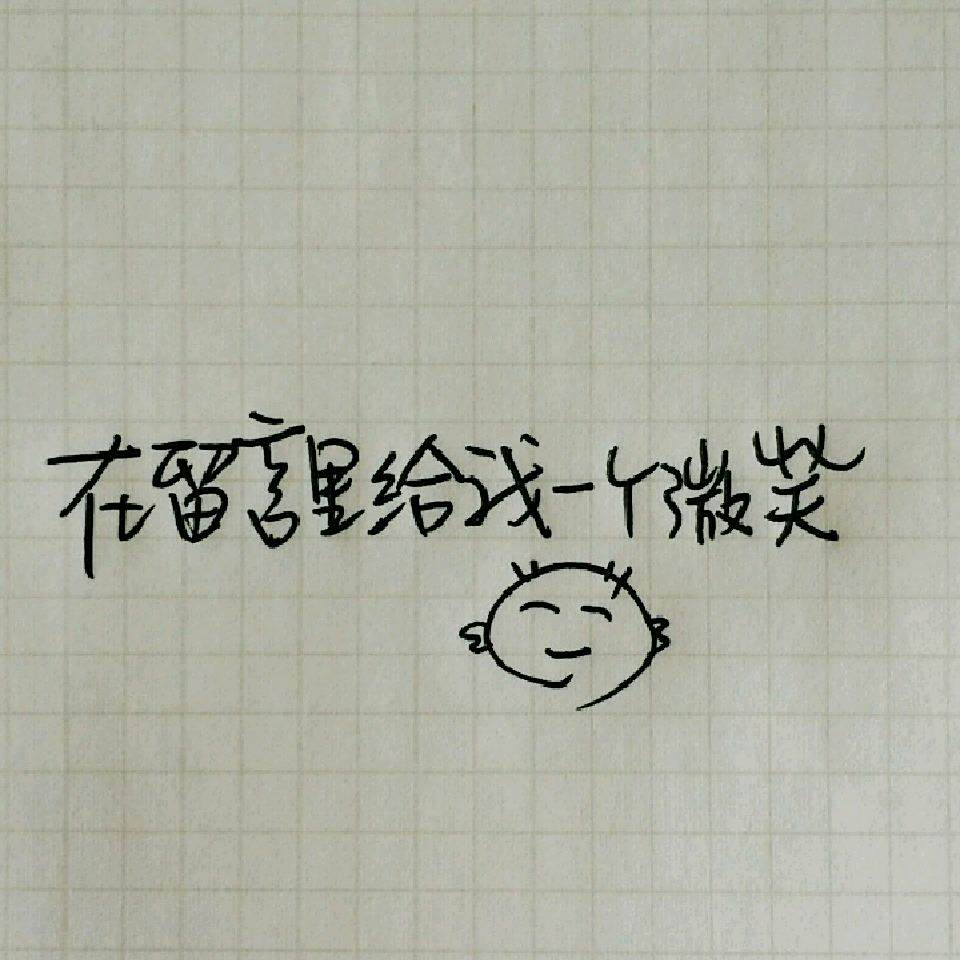 在留言里给我一个微笑